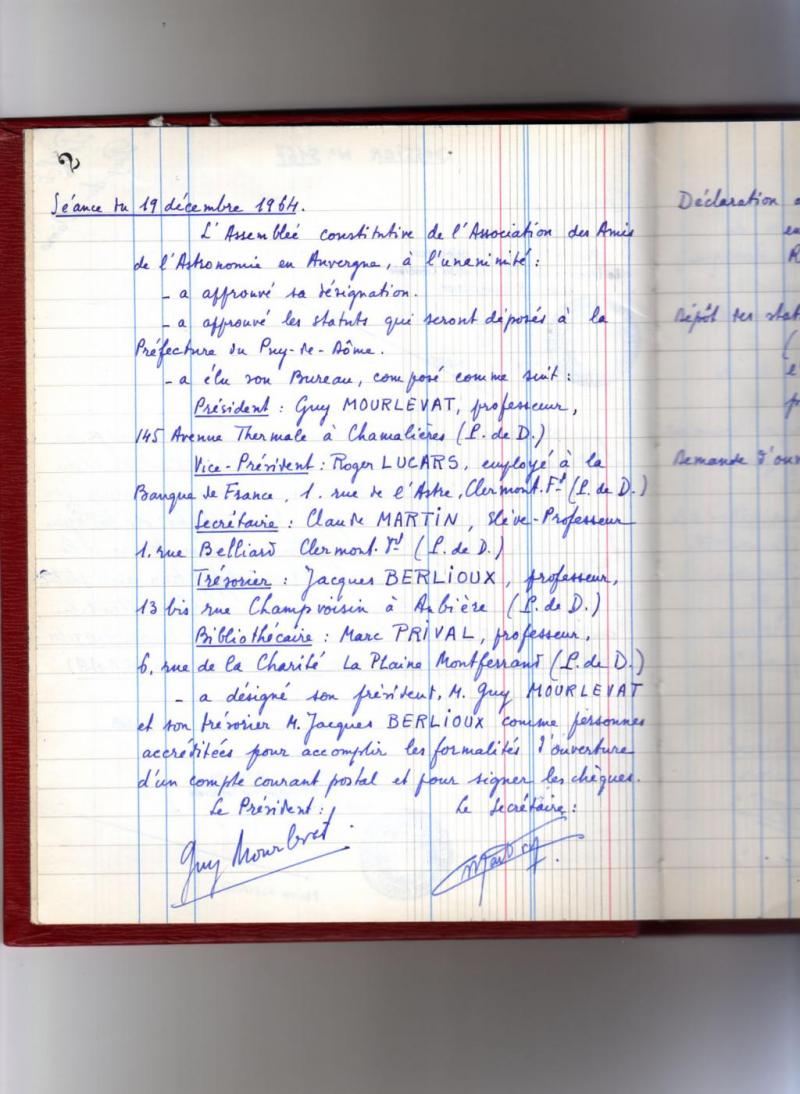 2
Séance du 19 décembre 1964.
L'Assemblée constitutive de l'Association des Amis
de l'Astronomie en Auvergne, à l'unanimité :
- a approuvé sa désignation.
- a approuvé les statuts qui seront déposés à la
Préfecture du Puy-de-Dôme.
- a élu son Bureau, composé comme suit :
Président : Guy MOURLEVAT, professeur,
145 Avenue Thermale à Chamalières (P. de D.)
Vice-Président : Roger LUCARS, employé à la
Banque de France, 1. rue de l'Astre, Clermont. Fd (P. de D.)
Secrétaire : Claude MARTIN, Elève-Professeur
1. rue Belliard Clermont. Fd (P. de D.)
Trésorier : Jacques BERLIOUX, professeur,
13 bis rue Champvoisin à Aubière (P. de D.)
Bibliothécaire : Marc PRIVAL, professeur,
6, rue de la Charité La Plaine Montferrand (P. de D.)
- a désigné son président, M. Guy MOURLEVAT
et son trésorier M. Jacques BERLIOUX comme personnes
accréditées pour accomplir les formalités d'ouverture
d'un compte courant postal et pour signer les chèques.
Le Président : Le Secrétaire :
Guy Mourlevat
Déclaration
Dépôt des stat
Demande d'ouv